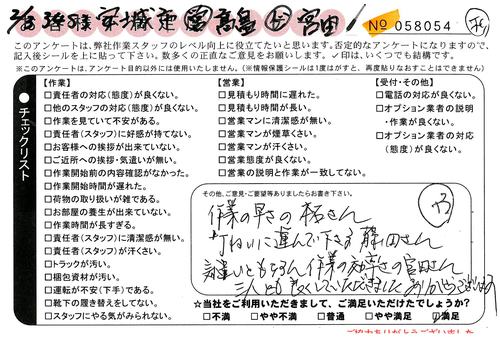 No 058054
このアンケートは、弊社作業スタッフのレベル向上に役立てたいと思います。否定的なアンケートになりますので、
記入後シールを上に貼って下さい。数多くの正直なご意見をお願いします。✓印は、いくつでも結構です。
※このアンケートは、アンケート目的以外には使用いたしません。(※情報保護シールは1度はがすと、再度貼りなおすことはできません)
チェックリスト
【作業】
□責任者の対応(態度)が良くない。
□他のスタッフの対応(態度)が良くない。
□作業を見ていて不安がある。
□責任者(スタッフ)に好感が持てない。
□お客様への挨拶が出来ていない。
□ご近所への挨拶・気遣いが無い。
□作業開始前の内容確認がなかった。
□作業開始時間が遅れた。
□荷物の取り扱いが雑である。
□お部屋の養生が出来ていない。
□作業時間が長すぎる。
□責任者(スタッフ)に清潔感が無い。
□責任者(スタッフ)が汗くさい。
□トラックが汚い。
□梱包資材が汚い。
□運転が不安(下手)である。
□靴下の履き替えをしてない。
□スタッフにやる気がみられない。
【営業】
□見積もり時間に遅れた。
□見積もり時間が長い。
□営業マンに清潔感が無い。
□営業マンが煙草くさい。
□営業マンが汗くさい。
□営業態度が良くない。
□営業の説明と作業が一致してない。
【受付・その他】
□電話の対応が良くない。
□オプション業者の説明
・作業が良くない。
□オプション業者の対応
(態度)が良くない。
その他、ご意見・ご要望等ありましたらお書き下さい。
作業の早さの柘さん
ていねいに運んで下さる 勝田さん
言葉づかいともちろん作業の効率さの宮田さん
三人とも良くしていただきました ありがとうございました
☆当社をご利用いただきまして、ご満足いただけたでしょうか?
□不満 □やや不満 □普通 □やや満足 □満足
ご協力ありがとうございました